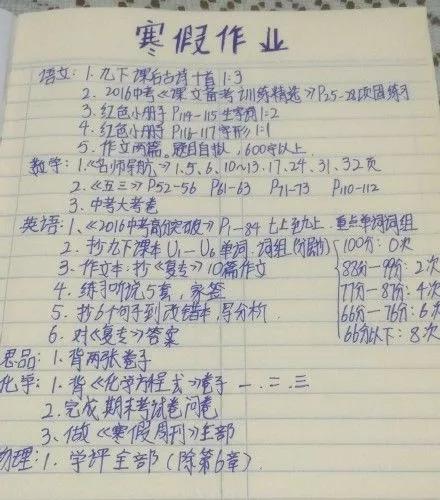 寒假作业
语文: 1. 九下课后古诗十首 1:3
2. 2016中考《课文备考训练精选》P25-28页固练习
3. 红色小册子 P114-115 生字词1:2
4. 红色小册子 P116-117 字形1:1
5. 作文两篇. 题目自拟, 600字以上.
数学: 1.《名师导航》1.5.6.10~13.17.24.31.32页
2.《五三》P52-56 P61-63 P71-73 P110-112
3. 中考大考卷
英语: 1.《2016中考高分突破》P1-84 七上至九上. 重点单词词组
2. 抄九下课本 U1-U6 单词. 词组 100分: 0次
3. 作文本: 抄《复专》10篇作文 88分—99分: 2次
4. 练习听说5套, 家签 77分—87分: 4次
5. 抄6个句子到改错本, 导分析. 66分—76分: 6次
6. 对《复专》答案 66分以下: 8次
思品: 1. 背两张卷子
化学: 1. 背《化学方程式》卷子 一.二.三
2. 完成期末考试卷问卷
3. 做《寒假周刊》全部
物理: 1. 学评全部 (除第6章).